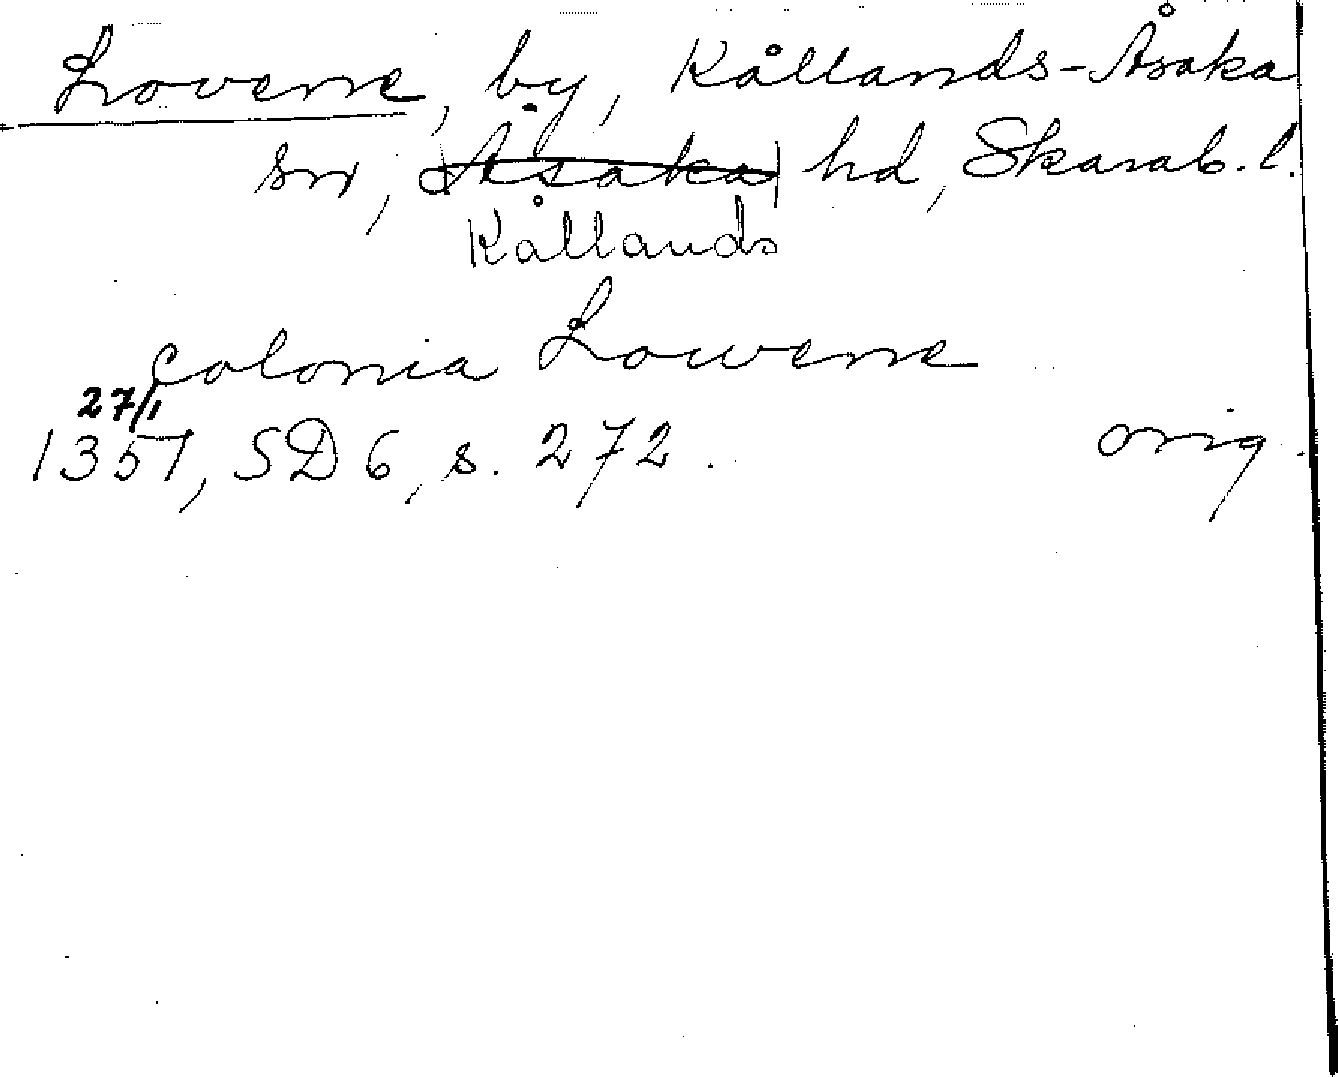 Lovene, by, Kållands-Åsaka
sn, Åsaka hd, Skarab. l.
Kållands
colonia Lowene
27/1
1357, SD 6, s. 272. orig.